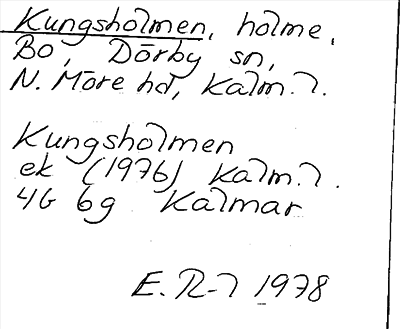 Kungsholmen, holme,
Bo, Dörby sn,
N. Möre hd, Kalm. l.
Kungsholmen
ek (1976) Kalm. l.
4G 6g Kalmar
E. R-l 1978